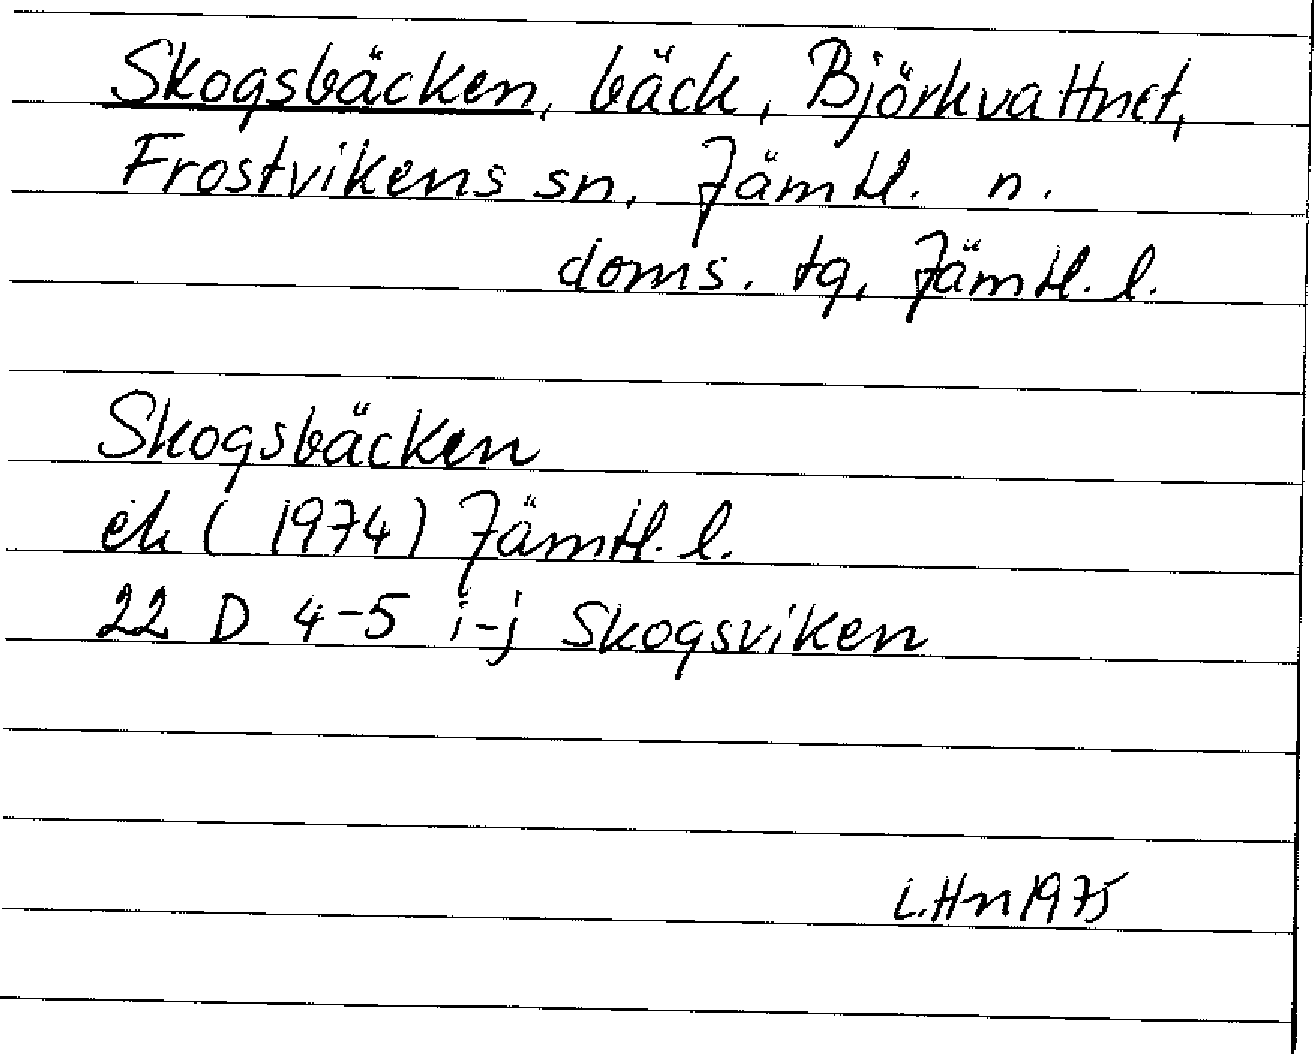 Skogsbäcken, bäck, Björkvattnet,
Frostvikens sn, Jämtl. n.
doms. tg, Jämtl. l.
Skogsbäcken
ek (1974) Jämtl. l.
22 D 4-5 i-j Skogsviken
L.Hn 1975